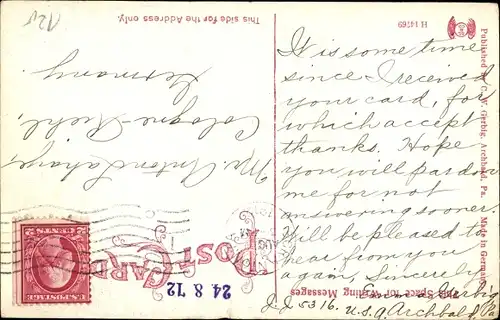 12.-
This side for the Address only.
Mr. Anton Lahaye,
Cologne-Riehl,
Germany.
POST CARD
24 8 12
U.S. POSTAGE
2 CENTS 2
H 14769
Published by C. W. Gerbig, Archbald, Pa. Made in Germany.
This Space for Writing Messages
It is some time
since I received
your card, for
which accept
thanks. Hope
you will pardon
me for not
answering sooner.
Will be pleased to
hear from you
again, Sincerely
Gerbig
J. J. 5316. U.S.A. Archbald Pa